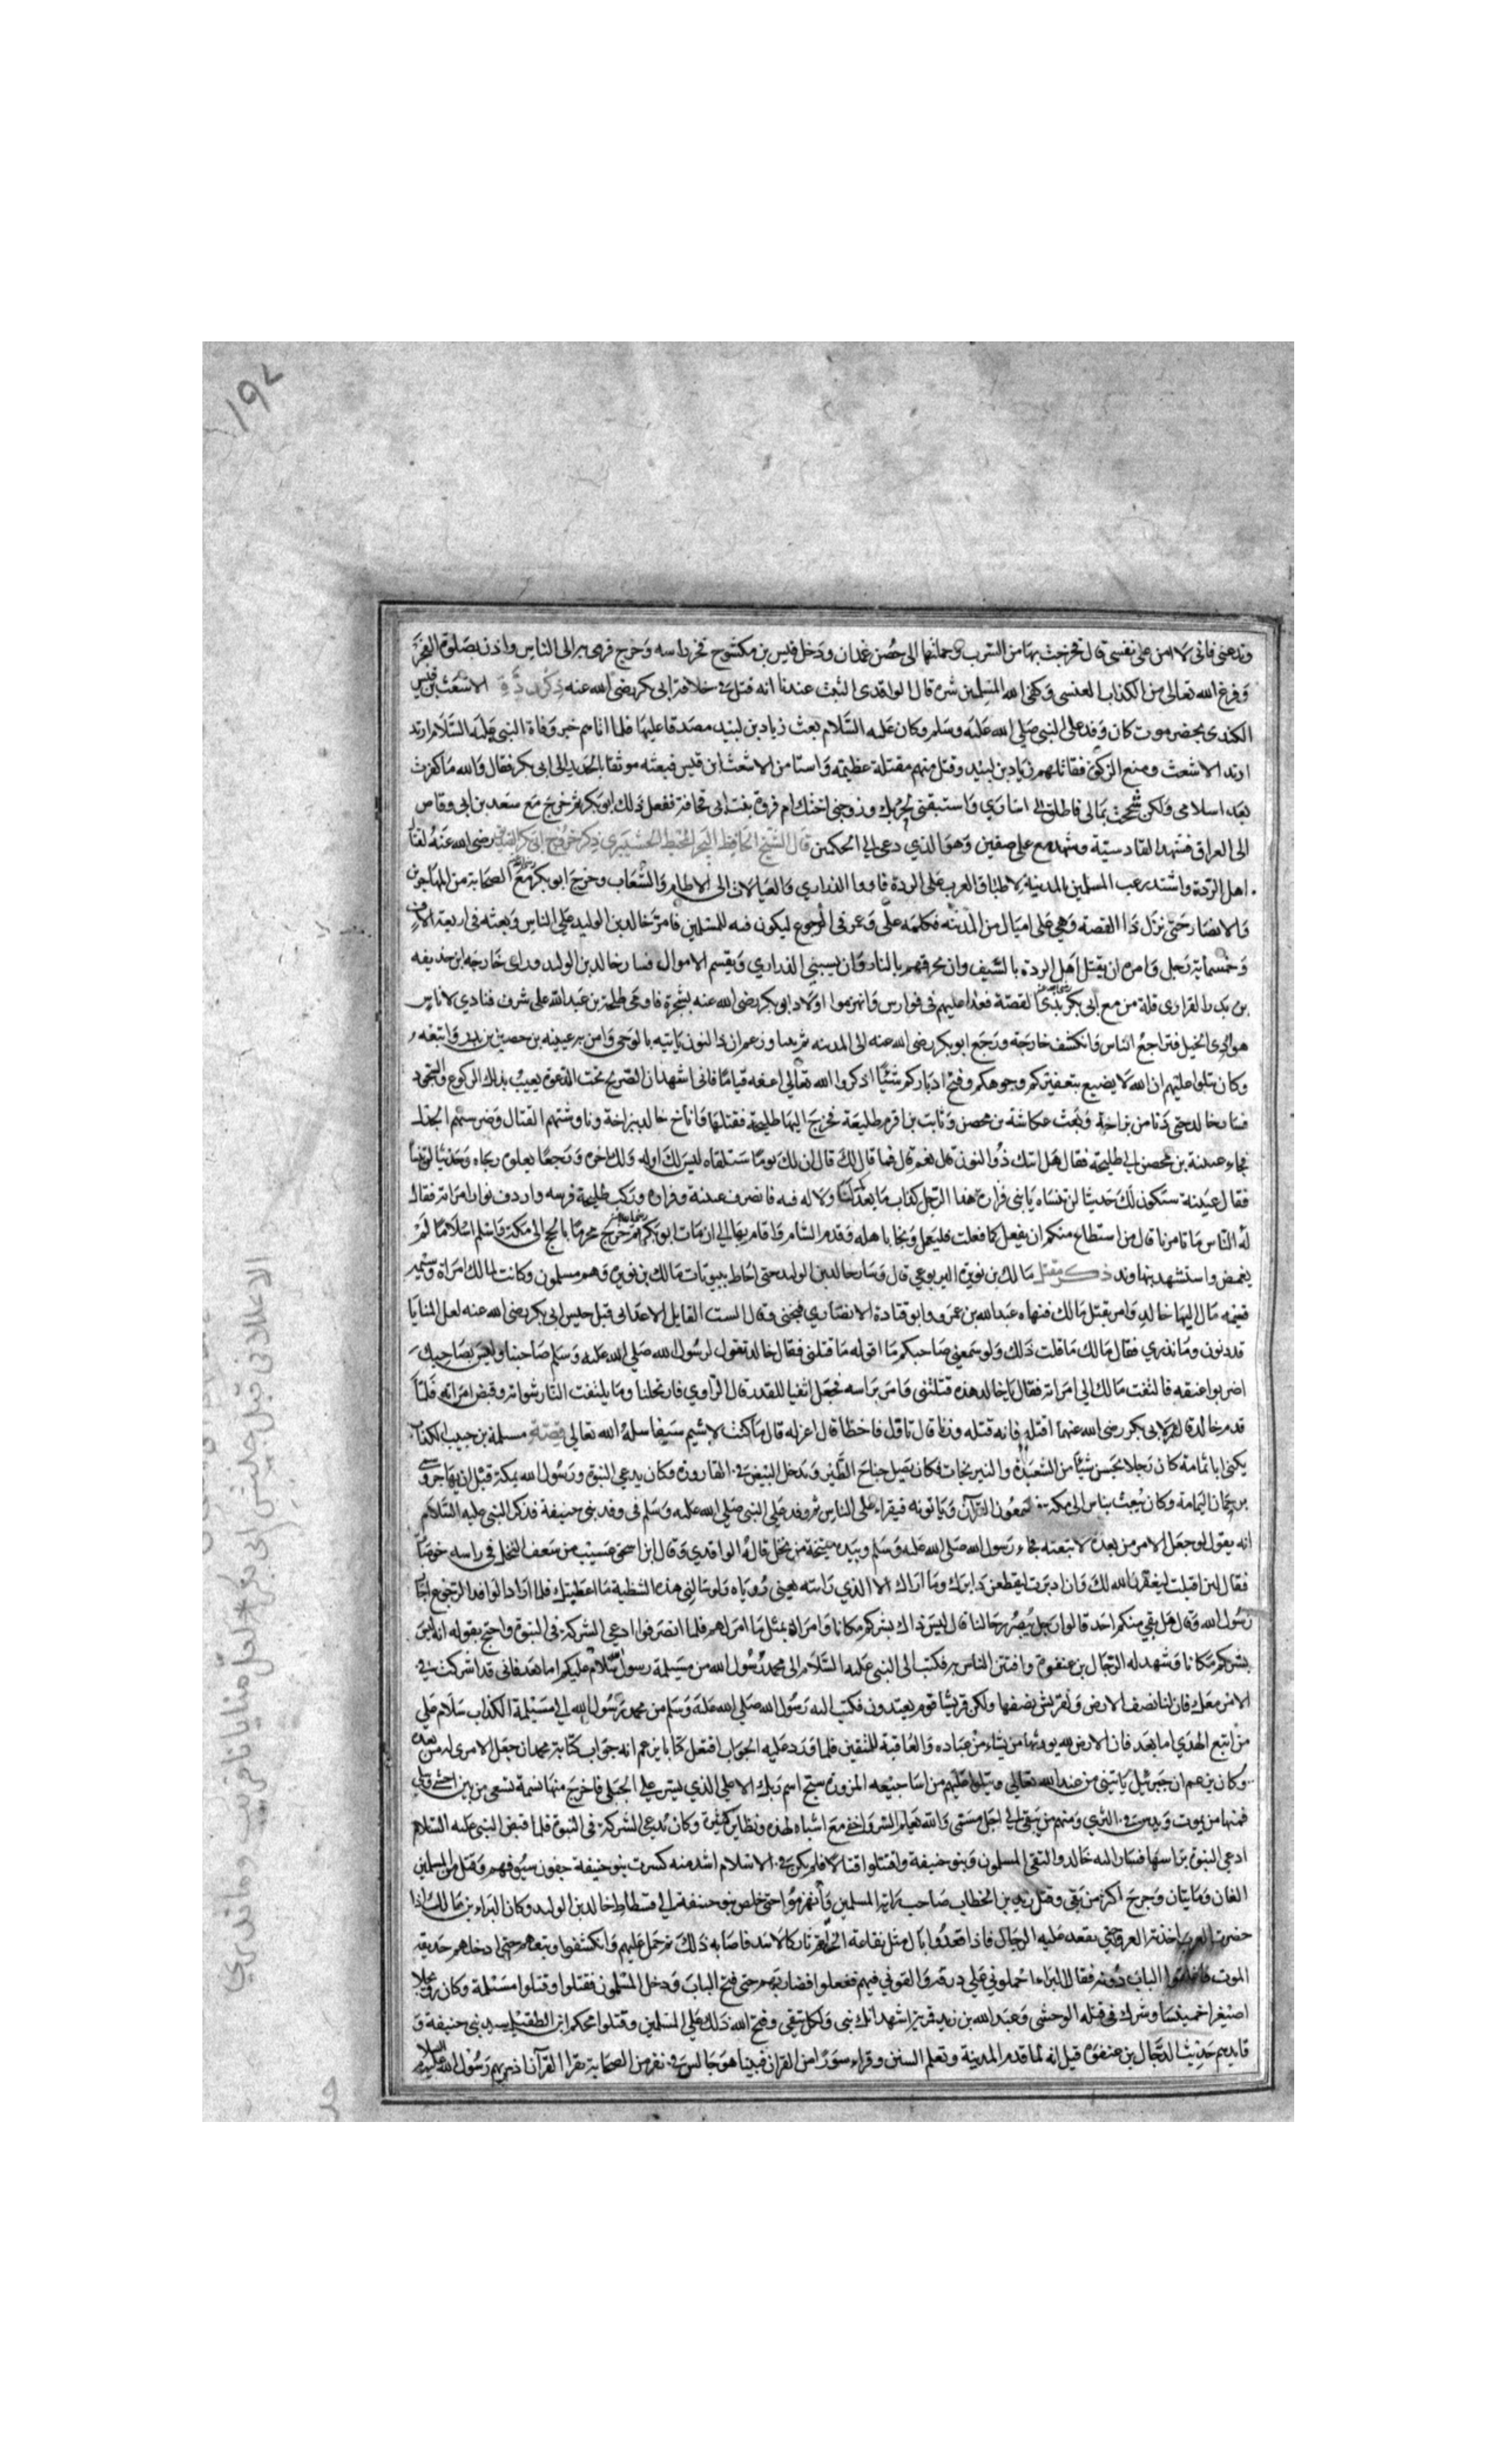 ١٩٢
وتدعني فاني لا امن على نفسي قال فخرجت بهما من السرب وحملتهما الى حصن غمدان ودخل قيس بن مكشوح فخر راسه وخرج فرمى به الى الناس واذن بصلوة الفجر
وفرغ الله تعالى من الكذاب العنسي وكفى الله المسلمين شره قال الواقدي الثبت عندنا انه قتل في خلافة ابي بكر رضي الله عنه ذكر ردة الاشعث بن قيس
الكندي بحضرموت كان وفد على النبي صلى الله عليه وسلم وكان عليه السلام بعث زياد بن لبيد مصدقا عليها فلما اتاهم خبر وفاة النبي عليه السلام ارتد
ارتد الاشعث ومنع الزكوة فقاتلهم زياد بن لبيد وقتل منهم مقتلة عظيمة واستامن الاشعث ابن قيس فبعثه موثقا بالحديد الى ابي بكر فقال والله ما كفرت
بعد اسلامي ولكن شححت بمالي فاطلق لي اساري واستبقني لحربك وزوجني اختك ام فروة بنت ابي قحافة ففعل ذلك ابو بكر ثم خرج مع سعد بن ابي وقاص
الى العراق فشهد القادسية وشهد مع علي صفين وهو الذي دعى الى الحكمين قال الشيخ الحافظ ذكر خروج ابي بكر رضي الله عنه لقتال
اهل الردة واشتد رعب المسلمين بالمدينة لاطباق العرب على الردة فاووا الذراري والعيالات الى الاطام والشعاب وخرج ابو بكر مع الصحابة من المهاجرين
والانصار حتى نزل ذا القصة وهي على اميال من المدينه فكلمه علي وعمر في الرجوع ليكون فيه للمسلمين فامر خالد بن الوليد على الناس وبعثه في اربعة الاف
وخمسماية رجل وامره ان يقتل اهل الردة بالسيف وان يحرقهم بالنار وان يسبي الذراري ويقسم الاموال فسار خالد بن الوليد وراى خارجه ابن حذيفه
بن بدر الفزاري قلة من مع ابي بكر بذي القصة فعدا عليهم في فوارس وانهزموا ولاذ ابو بكر رضي الله عنه بشجرة فاوفى طلحة بن عبد الله على شرف فنادى لا باس
هو الذي الخيل فتراجع الناس وانكشف خارجة ورجع ابو بكر رضي الله عنه الى المدينه وزعم ان ذا النون ياتيه بالوحي وامن به عيينه بن حصين بن بدر واتبعه
وكان يتلو عليهم ان الله لا يضيع بتعفيركم وجوهكم وفتح ادباركم شيئا اذكروا الله تعالى اعفه قياما فاني اشهد ان الصريح تحت الدعوة يعيب بذلك الركوع والسجود
فسار خالد حتى دنا من بزاخة وبعث عكاشة بن محصن وثابت بن اقرم طليعة فخرج اليها طليحة فقتلها واناخ خالد ببزاخة وناوشتهم القتال وضرستهم الجدال
فجاء عيينة بن محصن الى طليحة فقال هل اتاك ذو النون قال نعم قال فما قال لك قال ان لك يوما ستلقاه ليس لك اوله ولك اخره ورجعا يعلوم رجاه وحديثا لن ينسا
فقال عيينة ستكون لك حديثا لن تنساه يا بني فزاره هذا الرجل كذاب ما بعد لنا ولا له فيه فانصرف عيينة وفزاره وركب طليحة فرسه واردف نوار امراته فقال
له الناس ما تامرنا قال من استطاع منكم ان يفعل كما فعلت فليفعل ونجا باهله وقدم الشام واقام بها الى ان مات ابو بكر ثم خرج محرما بالحج الى مكة واسلم اسلاما لم
يغمض واستشهد بنهاوند ذكر مقتل مالك بن نويرة اليربوعي قال وسار خالد بن الوليد حتى احاط ببيوتات مالك بن نويره وهم مسلمون وكانت لمالك امراة وسيمه
قيمه مال اليها خالد وامر بقتل مالك فنهاه عبد الله بن عمر وابو قتادة الانصاري فجنى وقال الست القايل الا علاني قبل جيش ابي بكر رضي الله عنه لعل المنايا
قد دنون وما ندري فقال مالك ما قلت ذلك ولو سمعني صاحبكم ما اقوله ما قتلني فقال خالد تقول لرسول الله صلى الله عليه وسلم صاحبنا وليس بصاحبك
اضربوا عنقه فالتفت مالك الى امراته فقال يا خالد هذه قتلتني وامر براسه فجعل اثفيا للقدر قال الراوي فارتحلنا وما يلتفت النار شواته وقبض امراته فلما
قدم خالد قال عمر لابي بكر رضي الله عنهما اقتله فانه قتله وزنا قال تاول فاخطا قال اعزله قال ما كنت لاشيم سيفا سله الله تعالى قصة مسيلمة بن حبيب الكذاب
يكنى ابا ثمامة كان رجلا يحسن شيئا من الشعبذة والنيرنجات فكان يصل جناح الطير ويدخل البيض في القارورة وكان يدعي النبوة ورسول الله بمكة قبل ان يهاجر
بن يمان اليمامة وكان يبعث بناس الى مكه ليسمعون القرآن وياتونه فيقراء على الناس ثم وفد على النبي صلى الله عليه وسلم في وفد بني حنيفة فذكر النبي عليه السلام
انه يقول لو جعل الامر من بعده لاتبعته فجاء رسول الله صلى الله عليه وسلم وبيده ميتخة من نخل قاله الواقدي وقال ابن اسحق عسيب من سعف النخل في راسه خوصات
فقال لئن اقبلت ليغفرن الله لك وان ادبرت ليقطعن دابرك وما اراك الا الذي رايته يعني رؤياه ولو سالتني هذه الشظية ما اعطيتك فلما ارادا الوافد الرجوع اجا
رسول الله وقال هل بقي منكم احد قالوا رجل يبصر رحالنا قال ليس ذاك بشركم مكانا وامر له بمثل ما امر لهم فلما انصرفوا ادعى الشركة في النبوة واحتج بقوله انه ليس
بشركم مكانا وشهد له الرجال بن عنفوة وافتتن الناس به فكتب الى النبي عليه السلام الى محمد رسول الله من مسيلمة رسول سلام عليكم اما بعد فاني قد اشركت في
الامر معك فان لنا نصف الارض ولقريش نصفها ولكن قريشا قوم يعتدون فكتب اليه رسول الله صلى الله عليه وسلم من محمد رسول الله الى مسيلمة الكذاب سلام على
من اتبع الهدى اما بعد فان الارض لله يورثها من يشاء من عباده والعاقبة للمتقين فلما ورد عليه الجواب افتعل كتابا يزعم انه جواب كتابه محمد ان جعل الامر لي من بعده
وكان يزعم ان جبرئيل ياتيني من عند الله تعالى ويتلوا عليهم من اساجيعه المزورة سبح اسم ربك الاعلى الذي يسر على الحبلى فاخرج منها نسمة تسعى من بين احشا وبلى
فمنها من يموت ويدس في الثرى ومنهم من يبقى الى اجل مسمى والله يعلم السر واخفى مع اشباه لهذه ونظاير كثيرة وكان يدعي الشركة في النبوة فلما قبض النبي عليه السلام
ادعى النبوة براسها فسار اليه خالد والتقى المسلمون وبنو حنيفة واقتتلوا قتالا فلم يكن في الاسلام اشد منه كسرت بنو حنيفة جفون سيوفهم وقتل من المسلمين
الفان ومايتان وجرح اكثر من بقي وقتل زيد بن الخطاب صاحب راية المسلمين وانهزموا حتى خلص بنو حنيفة الى فسطاط خالد بن الوليد وكان البراء بن مالك اذا
حضرت الحرب اخذته العرواء حتى يقعد عليه الرجال فاذا اقعدوا بال مثل نقاعة الحنا ثم ثار كالاسد فاصابه ذلك ثم حمل عليهم وانكشفوا وتبعهم حتى ادخلهم حديقة
الموت الباب دونهم فقال البراء احملوني على درقة والقوني فيهم ففعلوا فضاربهم حتى فتح الباب ودخل المسلمون فقتلوا وقتلوا مسيلمة وكان رجلا
اصيفر اخينس وشرك في قتله الوحشي وعبد الله بن زيد اشهد انك نبي ولكل شقي وفتح الله ذلك على المسلمين وقتلوا محكم ابن الطفيل سيد بني حنيفة و
قايدهم حديث الرجال بن عنفوه قيل انه لما قدم المدينة وتعلم السنن وقراء سورا من القران فبينا هو جالس في نفر من الصحابة يقرا القرآن اذ مر بهم رسول الله عليه السلام
الا علاني قبل جيش ابي بكر * لعل منايانا قريب وما ندري